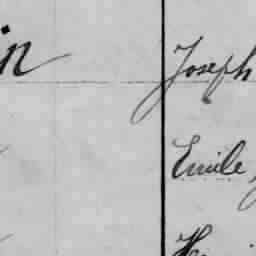 in Joseph
Emile